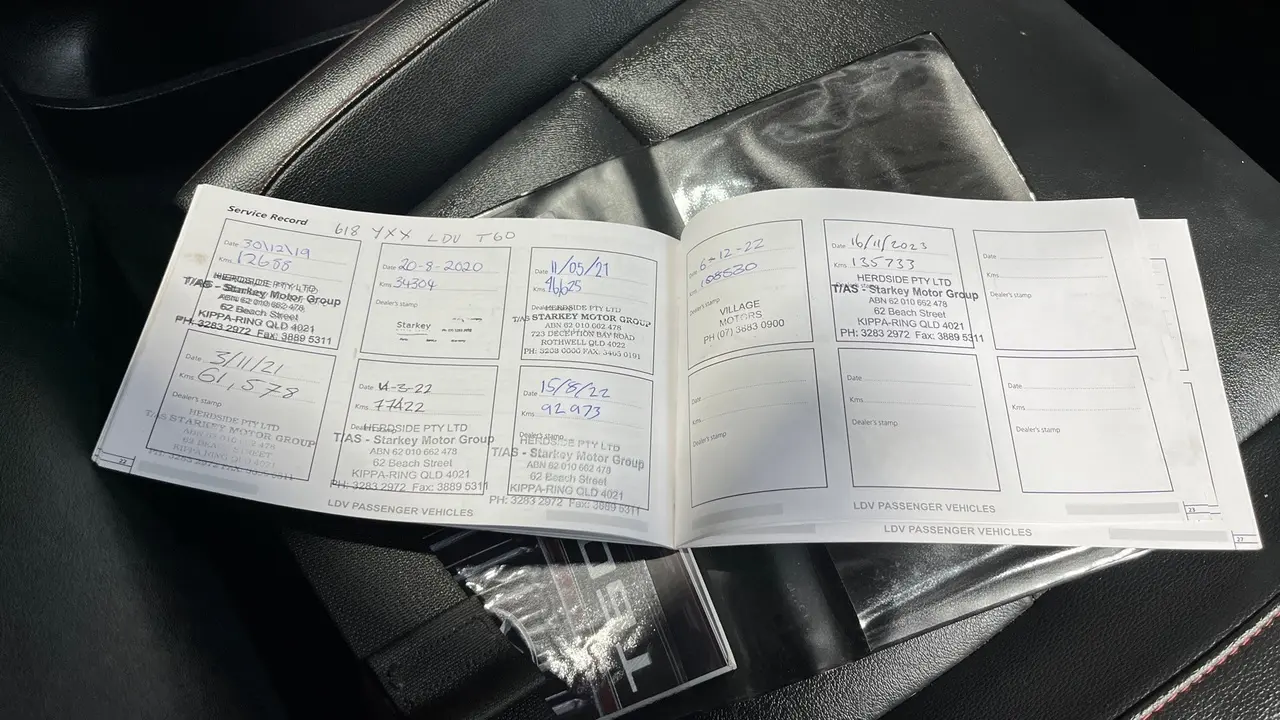 Service Record
618 YXX LDV T60
Date 30/12/19
Kms 12688
HERDSIDE PTY LTD
T/AS - Starkey Motor Group
ABN 62 010 662 478
62 Beach Street
KIPPA-RING QLD 4021
PH: 3283 2972 Fax: 3889 5311
Date 20-8-2020
Kms 34304
Dealer's stamp
Starkey
Date 11/05/21
Kms 46625
HERDSIDE PTY LTD
T/AS STARKEY MOTOR GROUP
ABN 62 010 662 478
723 DECEPTION BAY ROAD
ROTHWELL QLD 4022
Date 3/11/21
Kms 61,578
Dealer's stamp
HERDSIDE PTY LTD
T/AS STARKEY MOTOR GROUP
Date 4-3-22
Kms 77422
HERDSIDE PTY LTD
T/AS - Starkey Motor Group
ABN 62 010 662 478
62 Beach Street
KIPPA-RING QLD 4021
PH: 3283 2972 Fax: 3889 5311
Date 15/8/22
Kms 92973
HERDSIDE PTY LTD
T/AS - Starkey Motor Group
ABN 62 010 662 478
62 Beach Street
KIPPA-RING QLD 4021
PH: 3283 2972 Fax: 3889 5311
22
LDV PASSENGER VEHICLES
Date 6-12-22
Kms
Dealer's stamp
VILLAGE
MOTORS
PH (07) 3683 0900
Date 16/11/2023
Kms 135733
HERDSIDE PTY LTD
T/AS - Starkey Motor Group
ABN 62 010 662 478
62 Beach Street
KIPPA-RING QLD 4021
PH: 3283 2972 Fax: 3889 5311
Date
Kms
Dealer's stamp
Date
Kms
Dealer's stamp
Date
Kms
Dealer's stamp
Date
Kms
Dealer's stamp
LDV PASSENGER VEHICLES
23
LDV PASSENGER VEHICLES
27